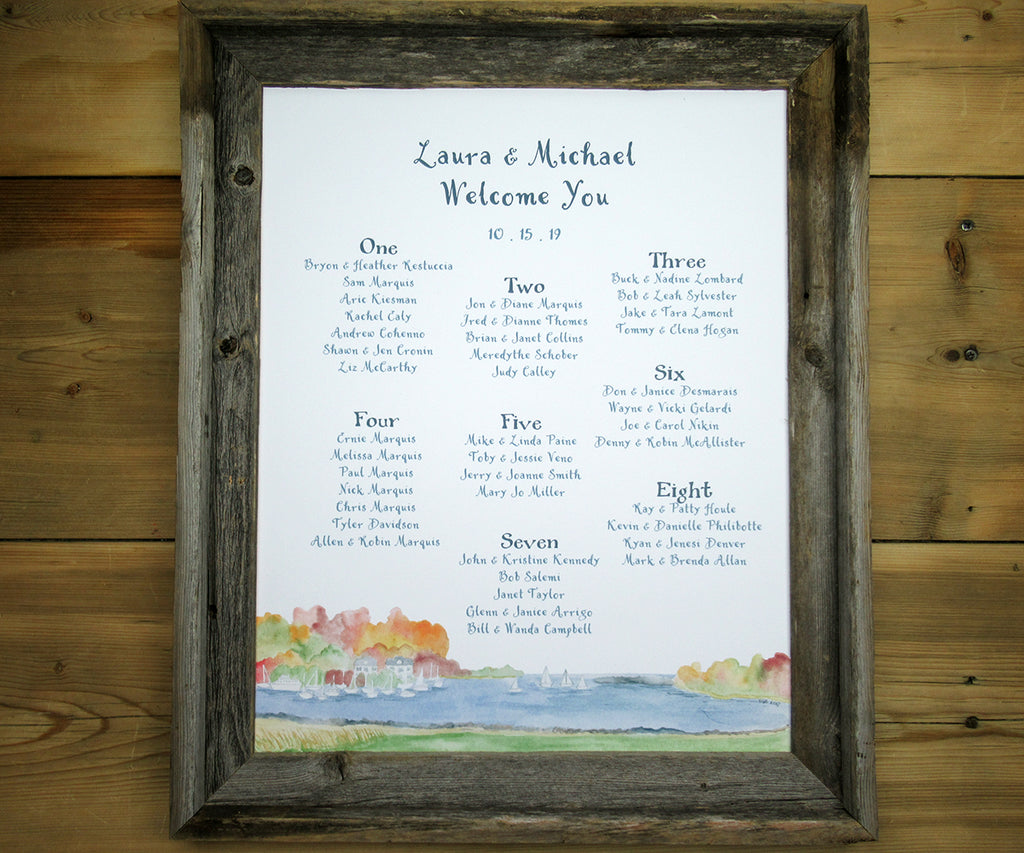 Laura & Michael
Welcome You
10 . 15 . 19
One
Bryon & Heather Restuccia
Sam Marquis
Arie Kiesman
Rachel Ealy
Andrew Cohenno
Shawn & Jen Cronin
Liz McCarthy
Two
Jon & Diane Marquis
Fred & Dianne Thomes
Brian & Janet Collins
Meredythe Schober
Judy Calley
Three
Buck & Nadine Lombard
Bob & Leah Sylvester
Jake & Tara Lamont
Tommy & Elena Hogan
Four
Ernie Marquis
Melissa Marquis
Paul Marquis
Nick Marquis
Chris Marquis
Tyler Davidson
Allen & Robin Marquis
Five
Mike & Linda Paine
Toby & Jessie Veno
Jerry & Joanne Smith
Mary Jo Miller
Six
Don & Janice Desmarais
Wayne & Vicki Gelardi
Joe & Carol Nikin
Denny & Robin McAllister
Seven
John & Kristine Kennedy
Bob Salemi
Janet Taylor
Glenn & Janice Arrigo
Bill & Wanda Campbell
Eight
Ray & Patty Houle
Kevin & Danielle Philibotte
Ryan & Jenesi Denver
Mark & Brenda Allan